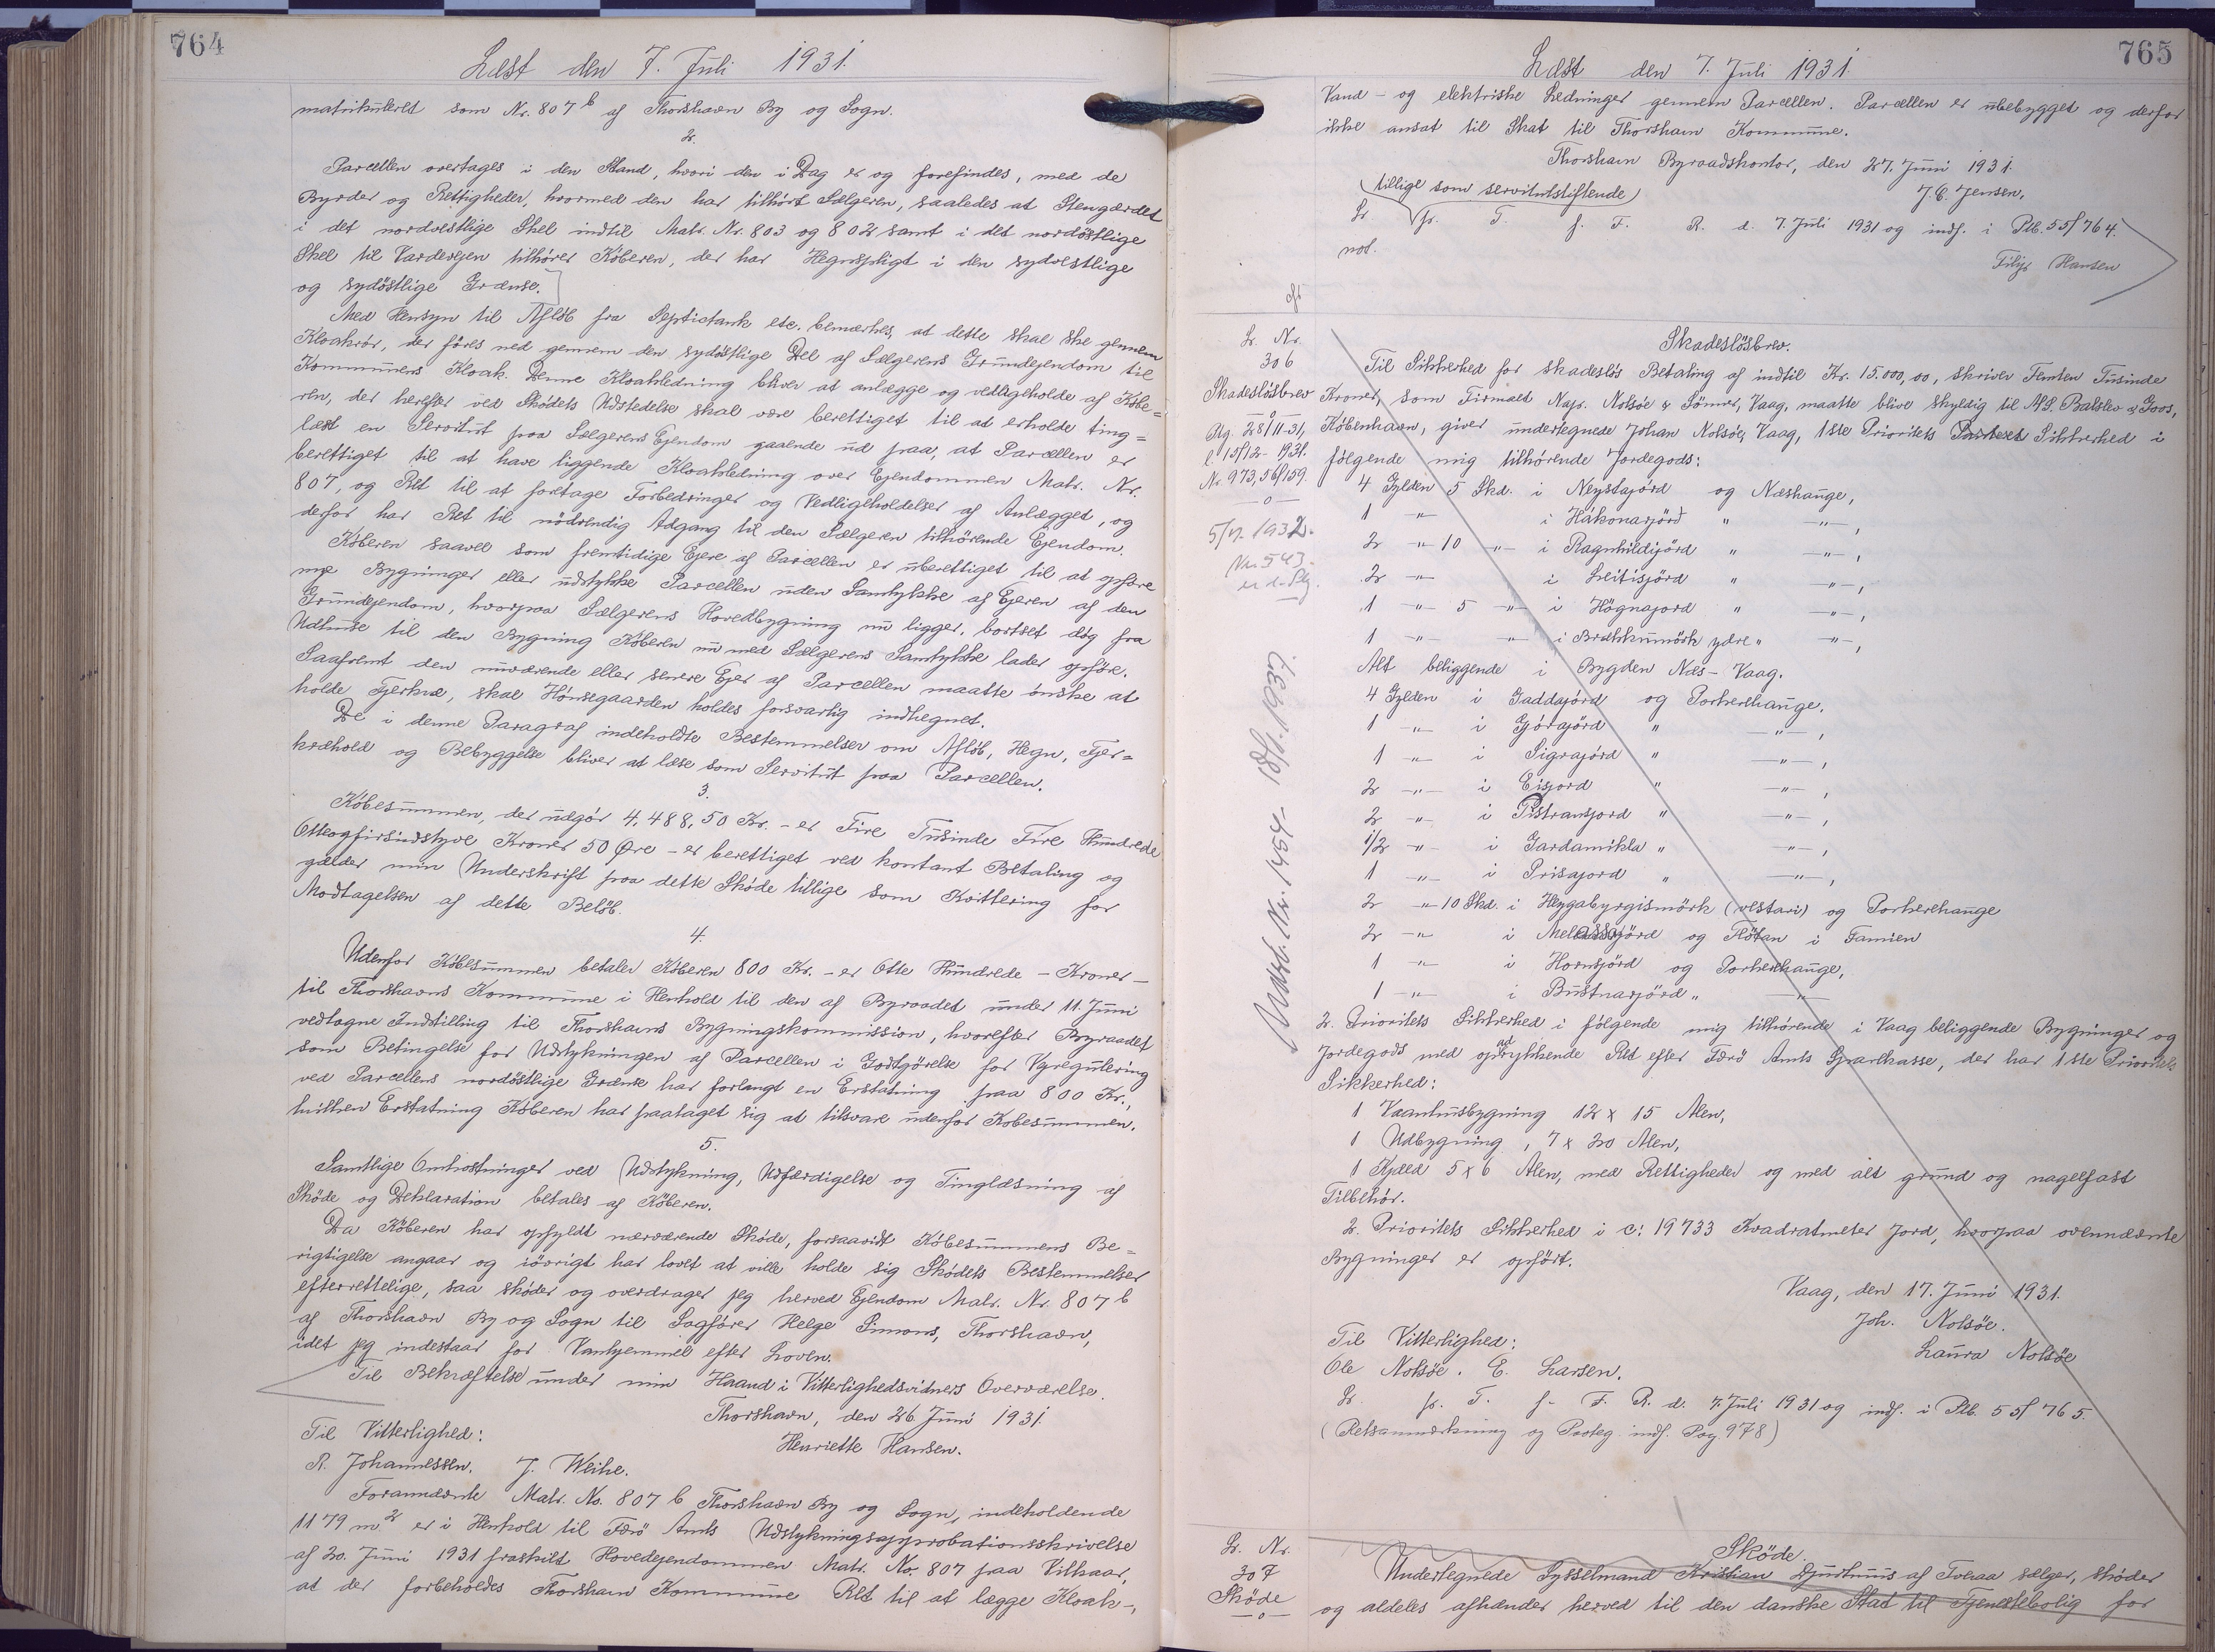 764
Læst den 7. Juli 1931.
matrikuleret som Nr. 807 b af Thorshavn By og Sogn.
2.
Parcellen overtages i den Stand, hvori den i Dag er og forefindes, med de
Byrder og Rettigheder, hvormed den har tilhørt Sælgeren, saaledes at Stengærdet
i det nordvestlige Skel indtil Matr. Nr. 803 og 802 samt i det nordöstlige
Skel til Vardevejen tilhører Köberen, der har Hegnspligt i den sydvestlige
og sydöstlige Grænse.
Med Hensyn til Aflöb fra Septictank etc. bemærkes, at dette skal ske gennem
Kloakrör, der föres ned gennem den sydöstlige Del af Sælgerens Grundejendom til
Kommunens Kloak. Denne Kloakledning bliver at anlægge og vedligeholde af Købe=
ren, der herefter ved Skødets Udstedelse skal være berettiget til at erholde ting=
læst en Servitut paa Sælgerens Ejendom gaaende ud paa, at Parcellen er
berettiget til at have liggende Kloakledning over Ejendommen Matr. Nr.
807, og Ret til at foretage Forbedringer og Vedligeholdelser af Anlægget, og
derfor har Ret til nödvendig Adgang til den Sælgeren tilhörende Ejendom.
Köberen saavel som fremtidige Ejere af Parcellen er uberettiget til at opföre
nye Bygninger eller udstykke Parcellen uden Samtykke af Ejeren af den
Grundejendom, hvorpaa Sælgerens Hovedbygning nu ligger, bortset dog fra
Udhuse til den Bygning Köberen nu med Sælgerens Samtykke lader opföre.
Saafremt den nuværende eller senere Ejer af Parcellen maatte önske at
holde Fjerkræ, skal Hönsegaarden holdes forsvarlig indhegnet.
De i denne Paragraf indeholdte Bestemmelser om Aflöb, Hegn, Fjer=
kræhold og Bebyggelse bliver at læse som Servitut paa Parcellen.
3.
Köbesummen, der udgör 4.488,50 Kr. - er Fire Tusinde Fire Hundrede
Otteogfirsindstyve Kroner 50 Øre - er berettiget ved kontant Betaling og
gælder min Underskrift paa dette Sköde tillige som Kvittering for
Modtagelsen af dette Belöb.
4.
Udenfor Köbesummen betaler Köberen 800 Kr. - er Otte Hundrede - Kroner -
til Thorshavns Kommune i Henhold til den af Byraadet under 11. Juni
vedtagne Indstilling til Thorshavns Bygningskommission, hvorefter Byraadet
som Betingelse for Udstykningen af Parcellen i Godtgörelse for Vejregulering
ved Parcellens nordöstlige Grænse har forlangt en Erstatning paa 800 Kr.,
hvilken Erstatning Köberen har paataget sig at tilsvare udenfor Købesummen.
5.
Samtlige Omkostninger ved Udstykning, Udfærdigelse og Tinglæsning af
Sköde og Deklaration betales af Köberen.
Da Köberen har opfyldt nærværende Sköde, forsaavidt Köbesummens Be=
rigtigelse angaar og iövrigt har lovet at ville holde sig Sködets Bestemmelser
efterrettelige, saa sköder og overdrager jeg herved Ejendom Matr. Nr. 807 b
af Thorshavn By og Sogn til Sagförer Helge Simons, Thorshavn,
idet jeg indestaar for Vanhjemmel efter Loven.
Til Bekræftelse under min Haand i Vitterlighedsvidners Overværelse.
Thorshavn, den 26. Juni 1931.
Til Vitterlighed:
Henriette Hansen.
R. Johannessen. J. Weihe.
Forannævnte Matr. No. 807 b Thorshavn By og Sogn, indeholdende
1179 m² er i Henhold til Færö Amts Udstykningsapprobationsskrivelse
af 20. Juni 1931 fraskilt Hovedejendommen Matr. No. 807 paa Vilkaar,
at der forbeholdes Thorshavn Kommune Ret til at lægge Kloak-,
765
Læst den 7. Juli 1931.
Vand- og elektriske Ledninger gennem Parcellen. Parcellen er ubebygget og derfor
ikke ansat til Skat til Thorshavn Kommune.
Thorshavn Byraadskontor, den 27. Juni 1931.
(tillige som servitutstiftende)
J. C. Jensen.
Lr. fr. T. f. F. R. d. 7. Juli 1931 og indf. i Ptb. 55/764.
not.
Filip Hansen
Lr. Nr.
306
Skadeslösbrev
Afg. 28/11-31,
l. 15/12-1931.
Nr. 973, 56/159.
5/7. 1932.
Nr. 543.
Udsl. Nr. 1454- 18/1. 1937.
Skadeslösbrev.
Til Sikkerhed for skadeslös Betaling af indtil Kr. 15.000,00, skriver Femten Tusinde
Kroner, som Firmaet Napr. Nolsöe & Sönner, Vaag, maatte blive skyldig til A/S. Balslev & Goos,
København, giver undertegnede Johan Nolsöe, Vaag, 1ste Prioritets Sikkerhed i
fölgende mig tilhörende Jordegods:
4 Gylden 5 Skd. i Neystajörd og Næshauge,
1 -"- i Hákonarjörd " -"-,
2 -"- 10 -"- i Ragnhildijörd " -"-,
2 -"- i Leitisjörd " -"-,
1 -"- 5 -"- i Högnajord " -"-,
1 -"- -"- i Brækkumörk ydre " -"-,
Alt beliggende i Bygden Næs-Vaag.
4 Gylden i Gaddajörd og Porkerehauge.
1 -"- i Gjórajörd " -"-,
1 -"- i Sigrajörd " -"-,
2 -"- i Eisjord " -"-,
2 -"- i Pistransjord " -"-,
1/2 -"- i Gardamikla " -"-,
1 -"- i Prisajord " -"-,
2 -"- 10 Skd. i Heygabyrgismörk (vestari) og Porkerehauge
2 -"- i Melassajörd og Flötan i Famien
1 -"- i Hornsjörd og Porkerehauge,
1 -"- i Bustnarjörd " -"-
2. Prioritets Sikkerhed i fölgende mig tilhörende i Vaag beliggende Bygninger og
Jordegods med oprykkende Ret efter Færö Amts Sparekasse, der har 1ste Prioritets
Sikkerhed:
1 Vaanhusbygning 12 x 15 Alen,
1 Udbygning, 7 x 20 Alen,
1 Kjald 5 x 6 Alen, med Rettigheder og med alt grund og nagelfast
Tilbehör.
2. Prioritets Sikkerhed i c: 19733 Kvadratmeter Jord, hvorpaa ovennævnte
Bygninger er opfört.
Vaag, den 17. Juni 1931.
Joh. Nolsöe.
Til Vitterlighed:
Laura Nolsöe
Ole Nolsöe. E. Larsen.
Lr. fr. T. f. F. R. d. 7. Juli 1931 og indf. i Ptb. 55/765.
(Retsanmærkning og Paateg. indf. Pag 978)
Lr. Nr.
307
Sköde
Sköde.
Undertegnede Sysselmand Kristian Djurhuus af Tveraa sælger, sköder
og aldeles afhænder herved til den danske Stat til Tjenestebolig for